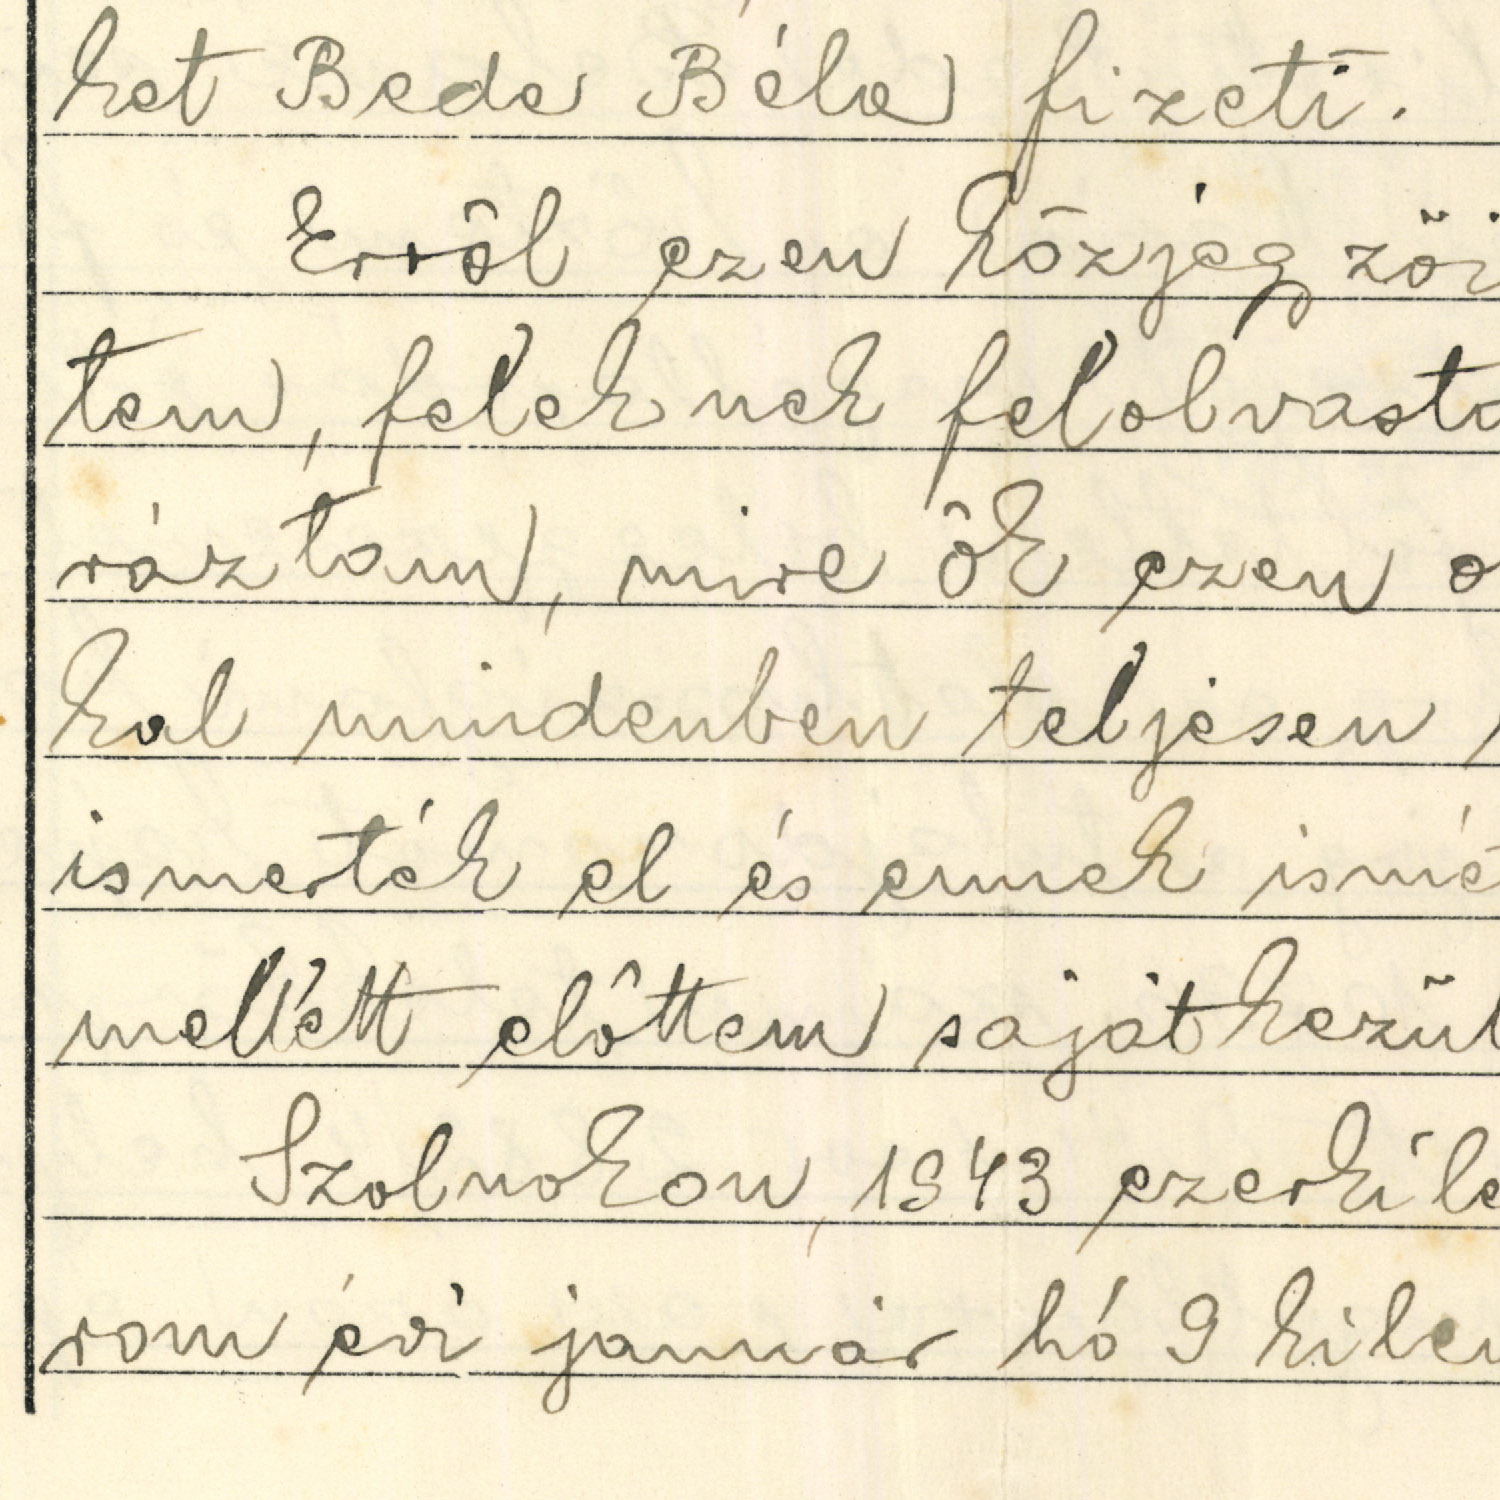 ket Bede Béla fizeti.
Erről ezen közjegyzői
tem, feleknek felolvasta
ráztam, mire ők ezen o
kal mindenben teljesen
ismerték el és ennek ismé
mellett előttem sajátkezül
Szolnokon, 1943 ezerkile
rom évi január hó 9 kilen